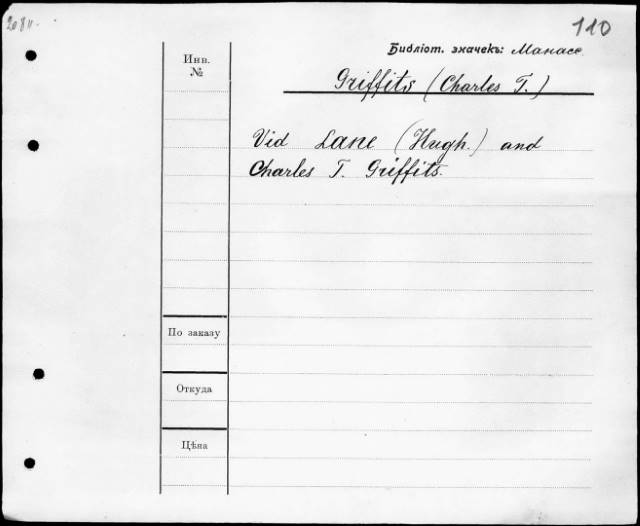 110
Библіот. значекъ: Манасс.
Инв.
№
Griffits (Charles T.)
Vid Lane (Hugh.) and
Charles T. Griffits.
По заказу
Откуда
Цѣна